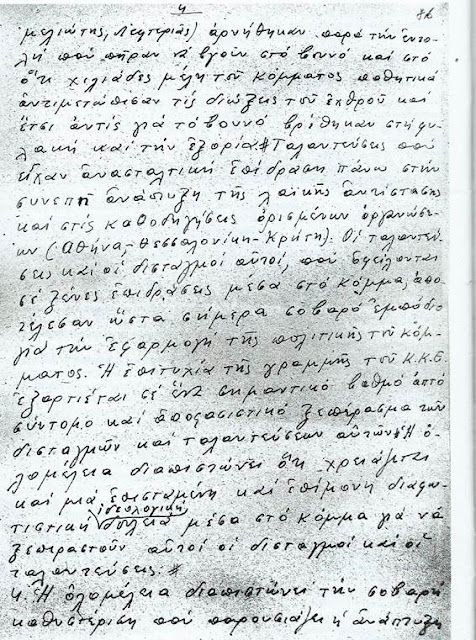 4
86
μελιώτης, Λευτεριάς) ἀρνήθηκαν παρά τήν ἐντο-
λή πού πῆραν νά βγοῦν στό βουνό καί στό
ὅτι χιλιάδες μέλη τοῦ κόμματος παθητικά
ἀντιμετώπισαν τίς διώξεις τοῦ ἐχθροῦ καί
ἔτσι ἀντίς γιά τό βουνό βρέθηκαν στή φυ-
λακή καί τήν ἐξορία # Ταλαντεύσεις πού
εἶχαν ἀνασταλτική ἐπίδραση πάνω στήν
συνεπῆ ἀνάπτυξη τῆς λαϊκῆς ἀντίστασης
καί στίς καθοδηγήσεις ὁρισμένων ὀργανώσε-
ων (Ἀθήνα-Θεσσαλονίκη-Κρήτη). Οἱ ταλαντεύ-
σεις καί οἱ δισταγμοί αὐτοί, πού ὀφείλονται
σέ ξένες ἐπιδράσεις μέσα στό κόμμα, ἀπο-
τέλεσαν ὥς τά σήμερα σοβαρό ἐμπόδιο
γιά τήν ἐφαρμογή τῆς πολιτικῆς τοῦ κόμ-
ματος. Ἡ ἐπιτυχία τῆς γραμμῆς τοῦ Κ.Κ.Ε.
ἐξαρτιέται σέ ἕνα σημαντικό βαθμό ἀπό
σύντομο καί ἀποφασιστικό ξεπέρασμα τῶν
δισταγμῶν καί ταλαντεύσεων αὐτῶν # Ἡ ὁ-
λομέλεια διαπιστώνει ὅτι χρειάζεται
καί μιά ἐπισταμένη καί ἐπίμονη διαφω-
τιστική ἰδεολογική δουλειά μέσα στό κόμμα γιά νά
ξεπεραστοῦν αὐτοί οἱ δισταγμοί καί οἱ
ταλαντεύσεις. #
4. Ἡ ὁλομέλεια διαπιστώνει τήν σοβαρή
καθυστέριση πού παρουσιάζει ἡ ἀνάπτυξη